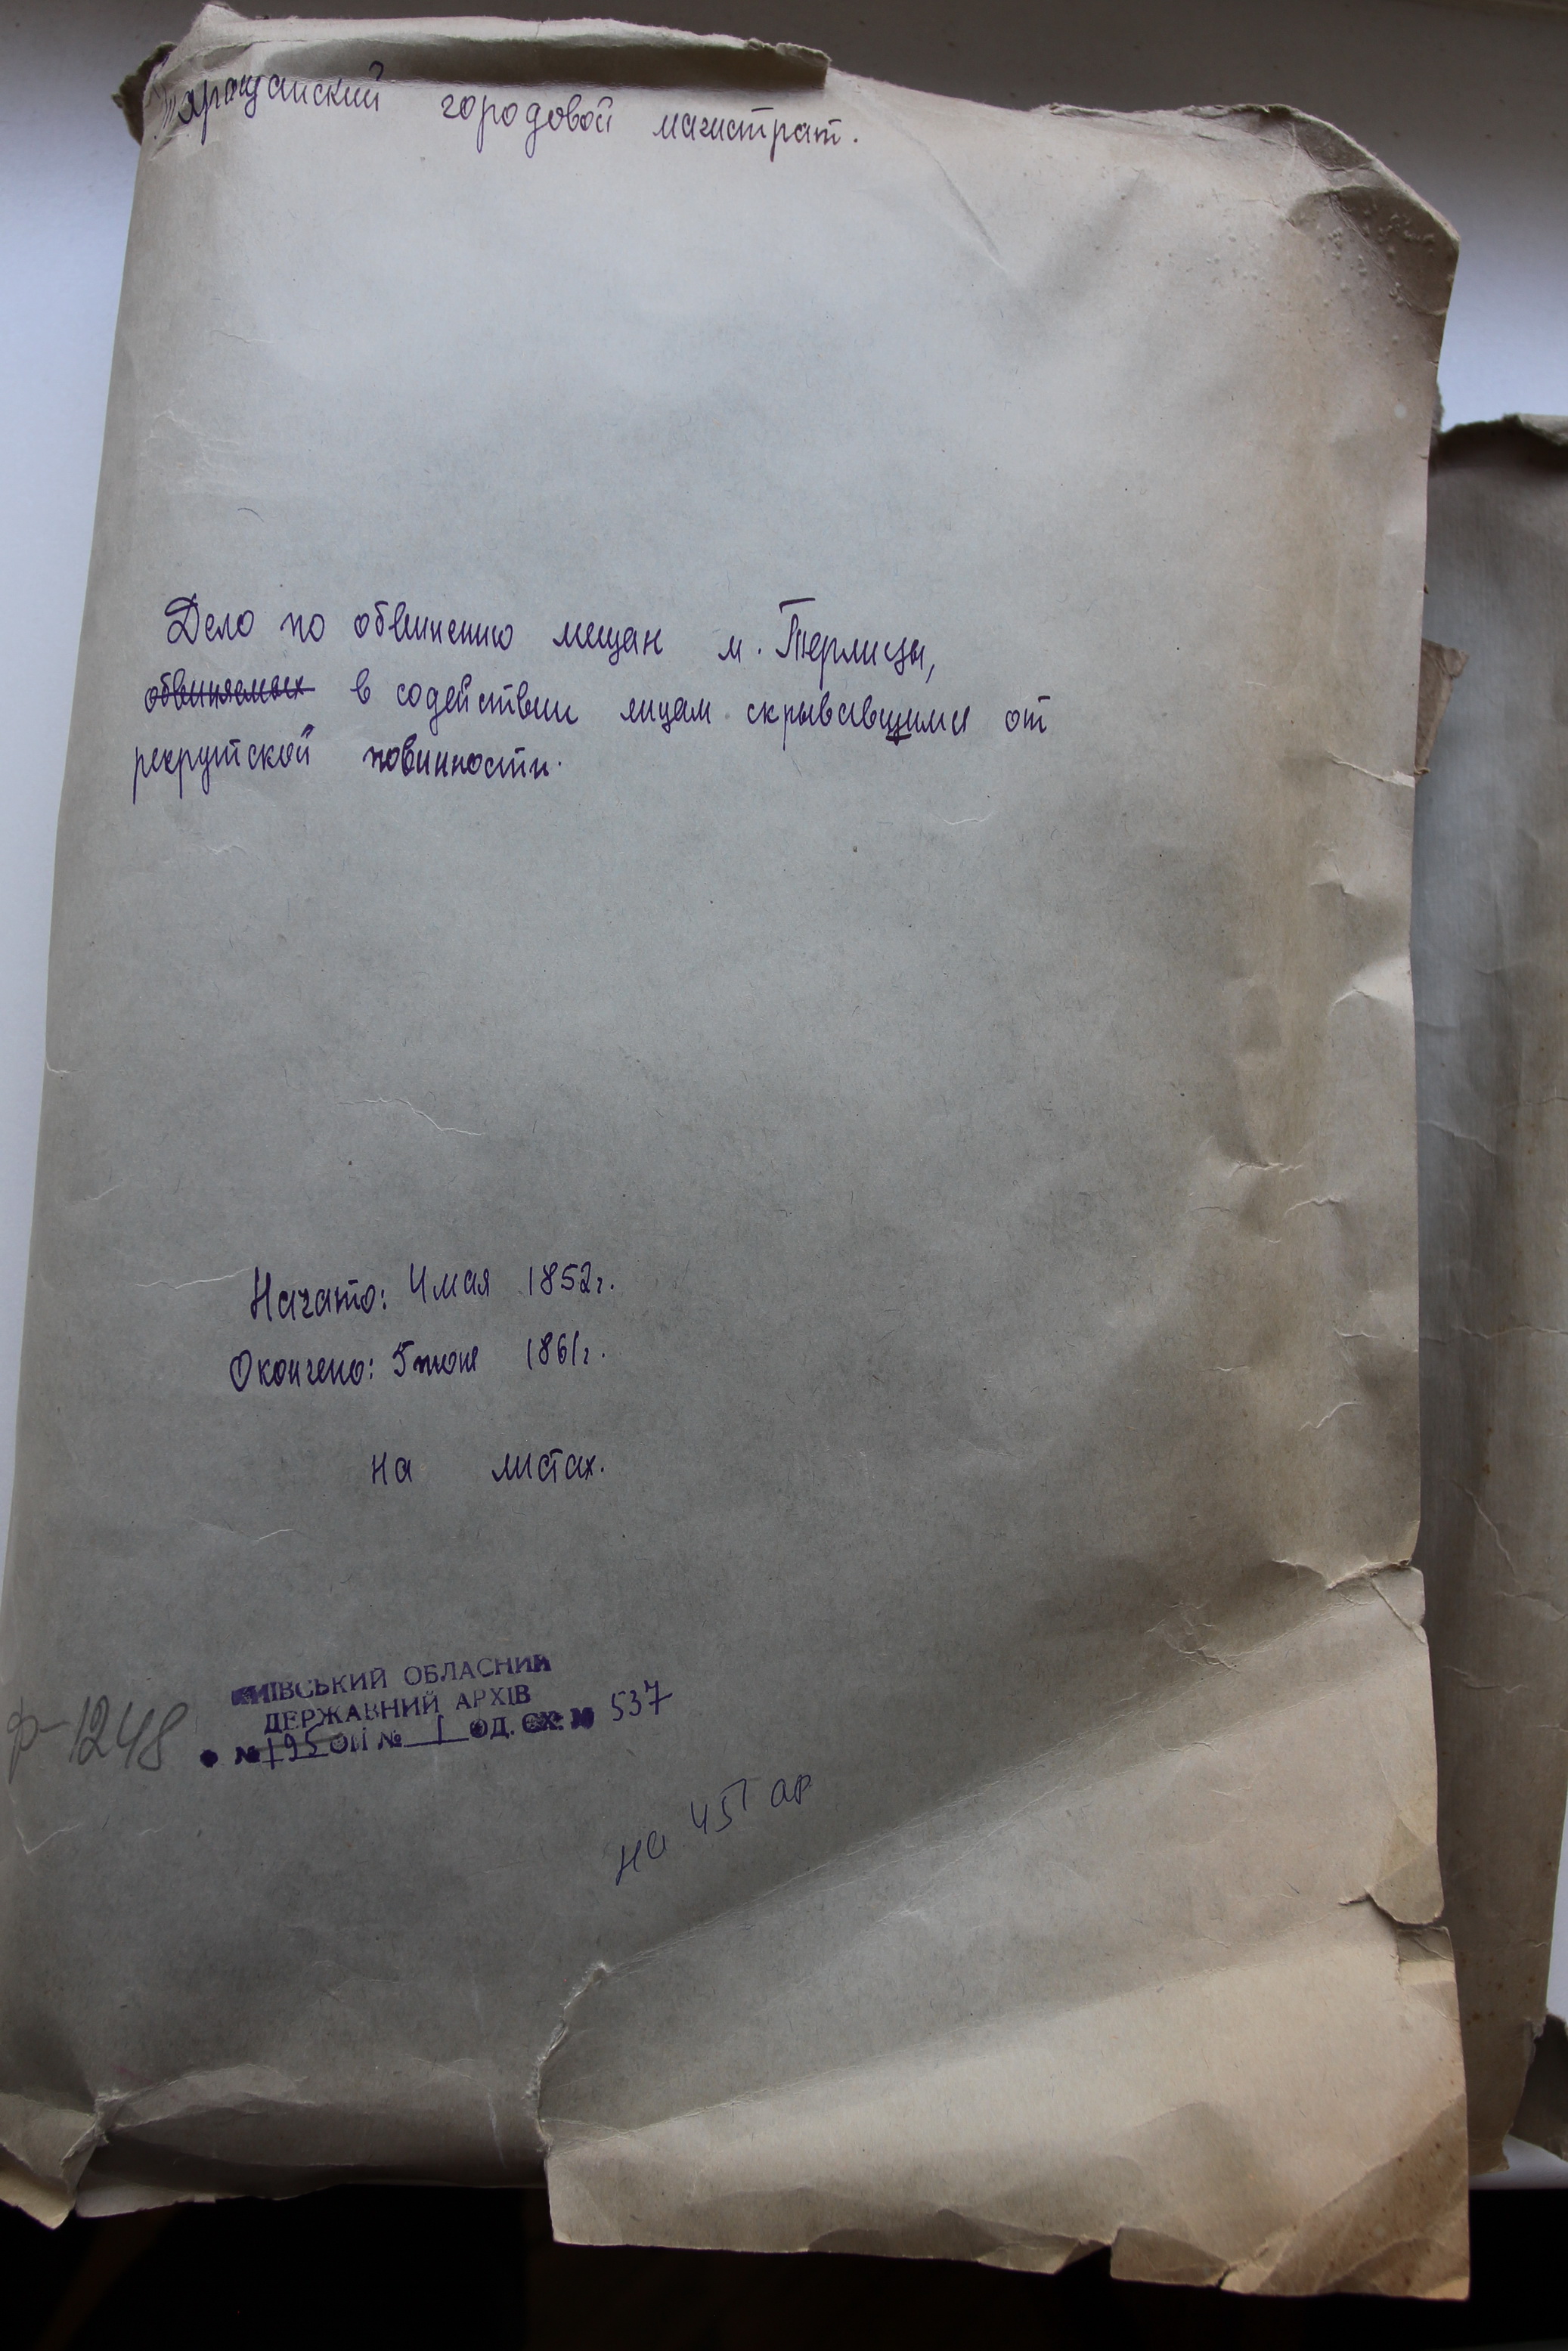 Таращанский городовой магистрат.
Дело по обвинению мещан м. Терлицы,
обвиняемых в содействии лицам скрывавщимся от
рекрутской повинности.
Начато: 4 мая 1852 г.
Окончено: 5 июня 1861 г.
на листах.
КИЇВСЬКИЙ ОБЛАСНИЙ
ДЕРЖАВНИЙ АРХІВ
ф-1248 № 195 ОП № 1 ОД. СХ. № 537
на 457 ар